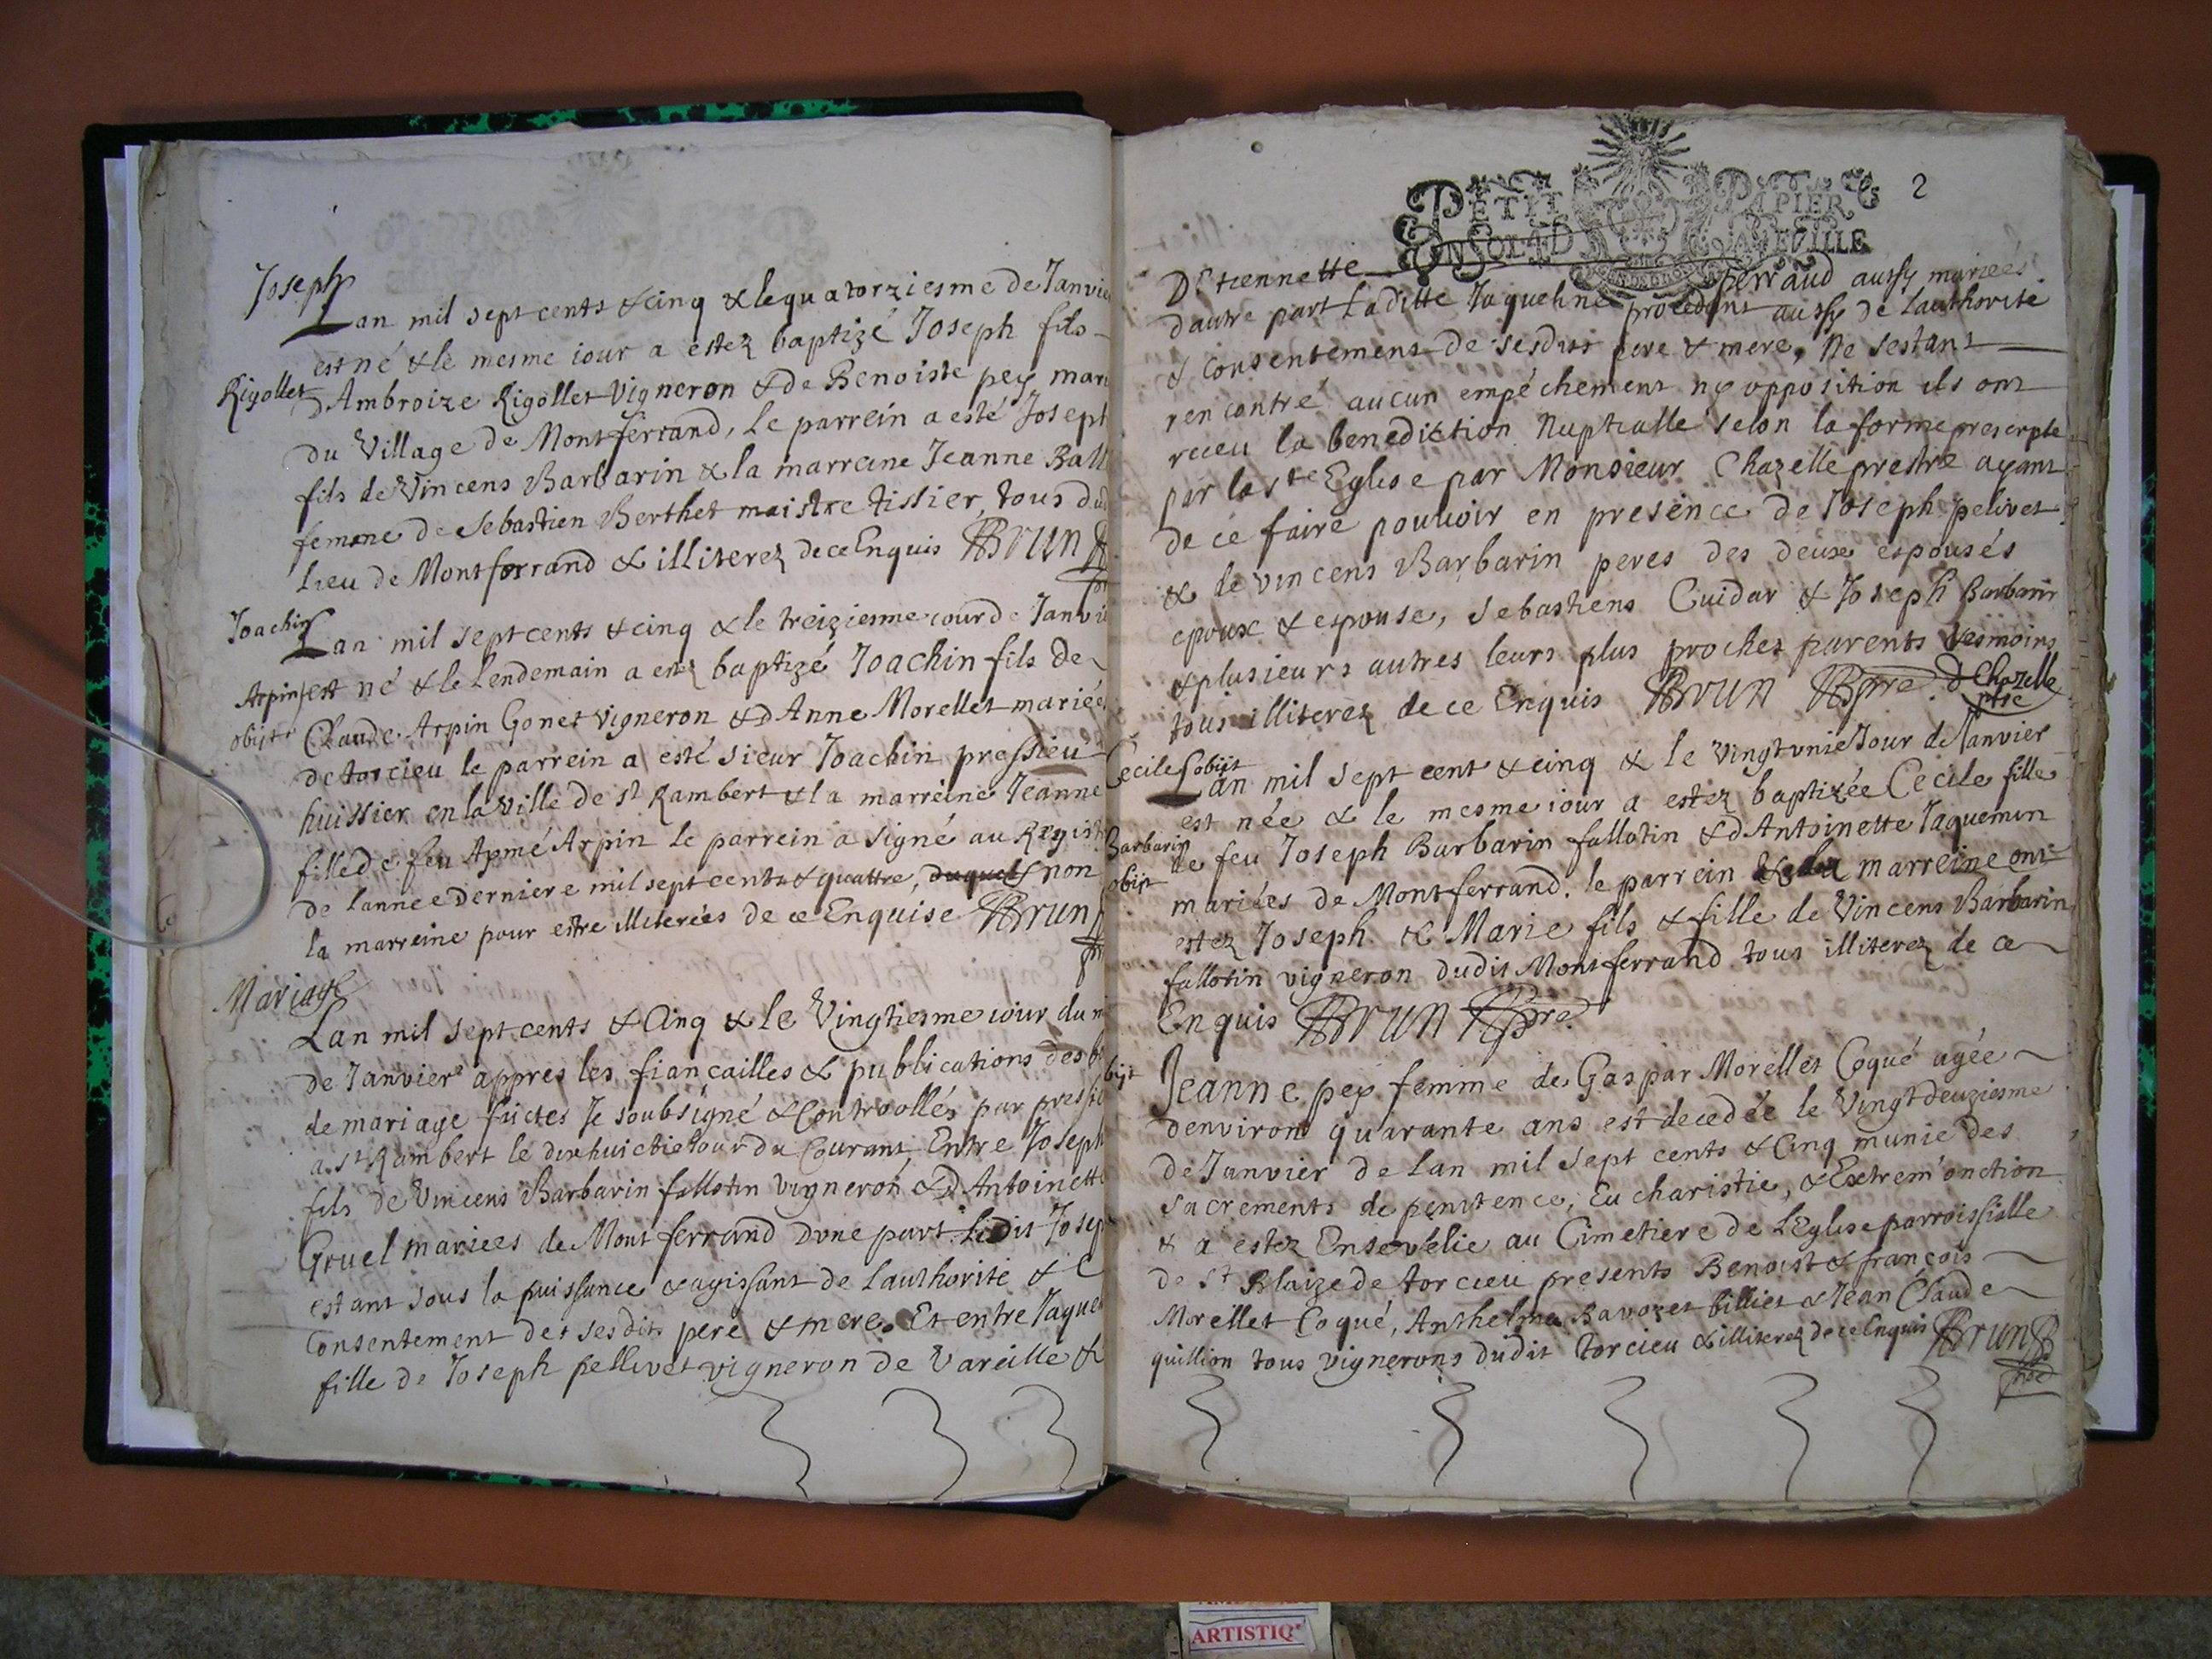 Joseph
Lan mil sept cents & cinq & le quatorziesme de Janvie
est né & le mesme iour a estez baptizé Joseph fils
Rigollet
d'Ambroize Rigollet Vigneron & de Benoiste pey mari
du Village de Montferrand, le parrein a esté Joseph
fils de Vincens Barbarin & la marreine Jeanne Ball
femme de Sebastien Berthet maistre tissier, tous dud
Lieu de Montferrand & illiterez de ce Enquis Brun
Joachin
Lan mil sept cents & cinq & le treiziesme iour de Janvi
Arpin
est né & le Lendemain a estez baptizé Joachin fils de
obijt
Claude Arpin Gonet vigneron & d'Anne Morellet mariée
de torcieu le parrein a esté sieur Joachin pressieu
huissier en la Ville de st Rambert & la marreine Jeanne
fille de feu Aymé Arpin le parrein a signé au Regist
de lannee derniere mil sept cents & quattre, duquels non
la marreine pour estre illiterées de ce Enquise Brun
Mariage
Lan mil sept cents & Cinq & le Vingtiesme iour du m
de Janvier appres les fiançailles & publications des b
de mariage faictes Je soubsigné & Controllés par pressie
a st Rambert le dixhuictie Jour du Courant, Entre Joseph
fils de Vincens Barbarin fallotin vigneron & d'Antoinette
Gruel mariees de Montferrand Dune part Ledit Josep
estant sous la puissance & agissant de lauthorité & C
Consentement des sesdits pere & mere. Et entre Jaque
fille de Joseph pellivet vigneron de Vareille &
2
PETIT PAPIER
UN SOL 4 D LA FEUILLE
D'Etiennette perraud aussy mariées
dautre part Laditte Jaqueline procedant aussy de lauthorité
& Consentement de sesdits pere & mere, Ne sestant
rencontré aucun empéchement ny opposition ils ont
receu la benediction Nuptialle selon la forme prescripte
par la ste Eglise par Monsieur Chazelle prestre ayant
de ce faire pouvoir en presence de Joseph pelivet
& de vincens Barbarin peres des deux espousés
epoux & espouse, Sebastiens Cuidar & Joseph Barbarin
& plusieurs autres leurs plus proches parents tesmoins
tous illiterez de ce Enquis Brun pre. d Chazelle
ptre
Cecile obijt
Lan mil sept cent & cinq & le Vingtunie Jour de Janvier
est née & le mesme iour a estez baptizée Cecile fille
Barbarin
de feu Joseph Barbarin fallotin & d'Antoinette Jaquemin
obijt
mariées de Montferrand. le parrein & la marreine ont
estez Joseph & Marie fils & fille de Vincens Barbarin
fallotin vigneron dudit Montferrand tous illiterez de ce
Enquis Brun pre.
bijt
Jeanne pey femme de Gaspar Morellet Coqué agée
denviron quarante ans est decedée le Vingtdeuziesme
de Janvier de lan mil sept cents & Cinq munie des
sacrements de penitence, Eucharistie, & Extrem'onction
& a estez Ensevélie au Cimetiere de LEglise parroissialle
de St Blaize de torcieu presents Benoist & françois
Morellet Coqué, Anthelme Ravozet billiet & Jean Claude
quillion tous vignerons dudit Torcieu & illiterez de ce Enquis Brun
ARTISTIQ